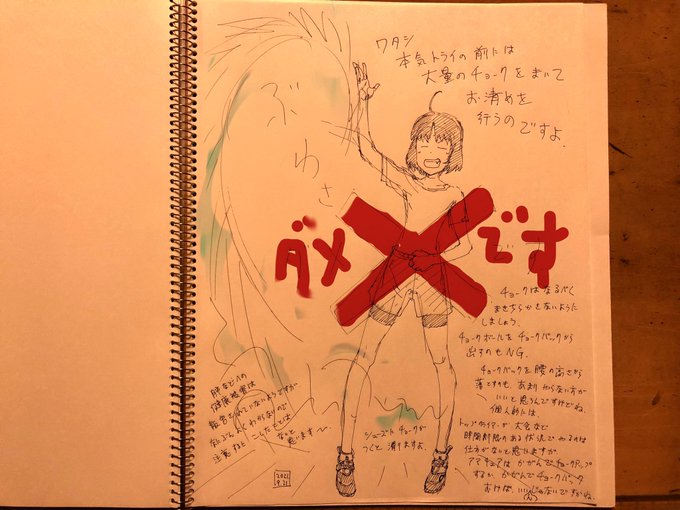 ワタシ
本気トライの前には
大量のチョークをまいて
お清めを
行うの
ですよ.
ぶわさ
ダメ
です
チョークはなるべく
まきちらかさないよう
しましょう.
チョークボールをチョークバックから
出すのもNG.
チョークバックを腰の高さから
落とすのも あまりやらない方が
いいと思うんですけどね.
個人的には
トップクライマーが大会など
時間制限のある状況でやるのは
仕方がないと感じますが
アマチュアは かがんでチョークアップ
するか かがんでチョークバック
おけば いいじゃないですかね.
肺などへの
健康被害は
報告されていないようですが
わからないので
注意
思います
シューズにチョークが
つくと 滑りますよ.
2021
9.21